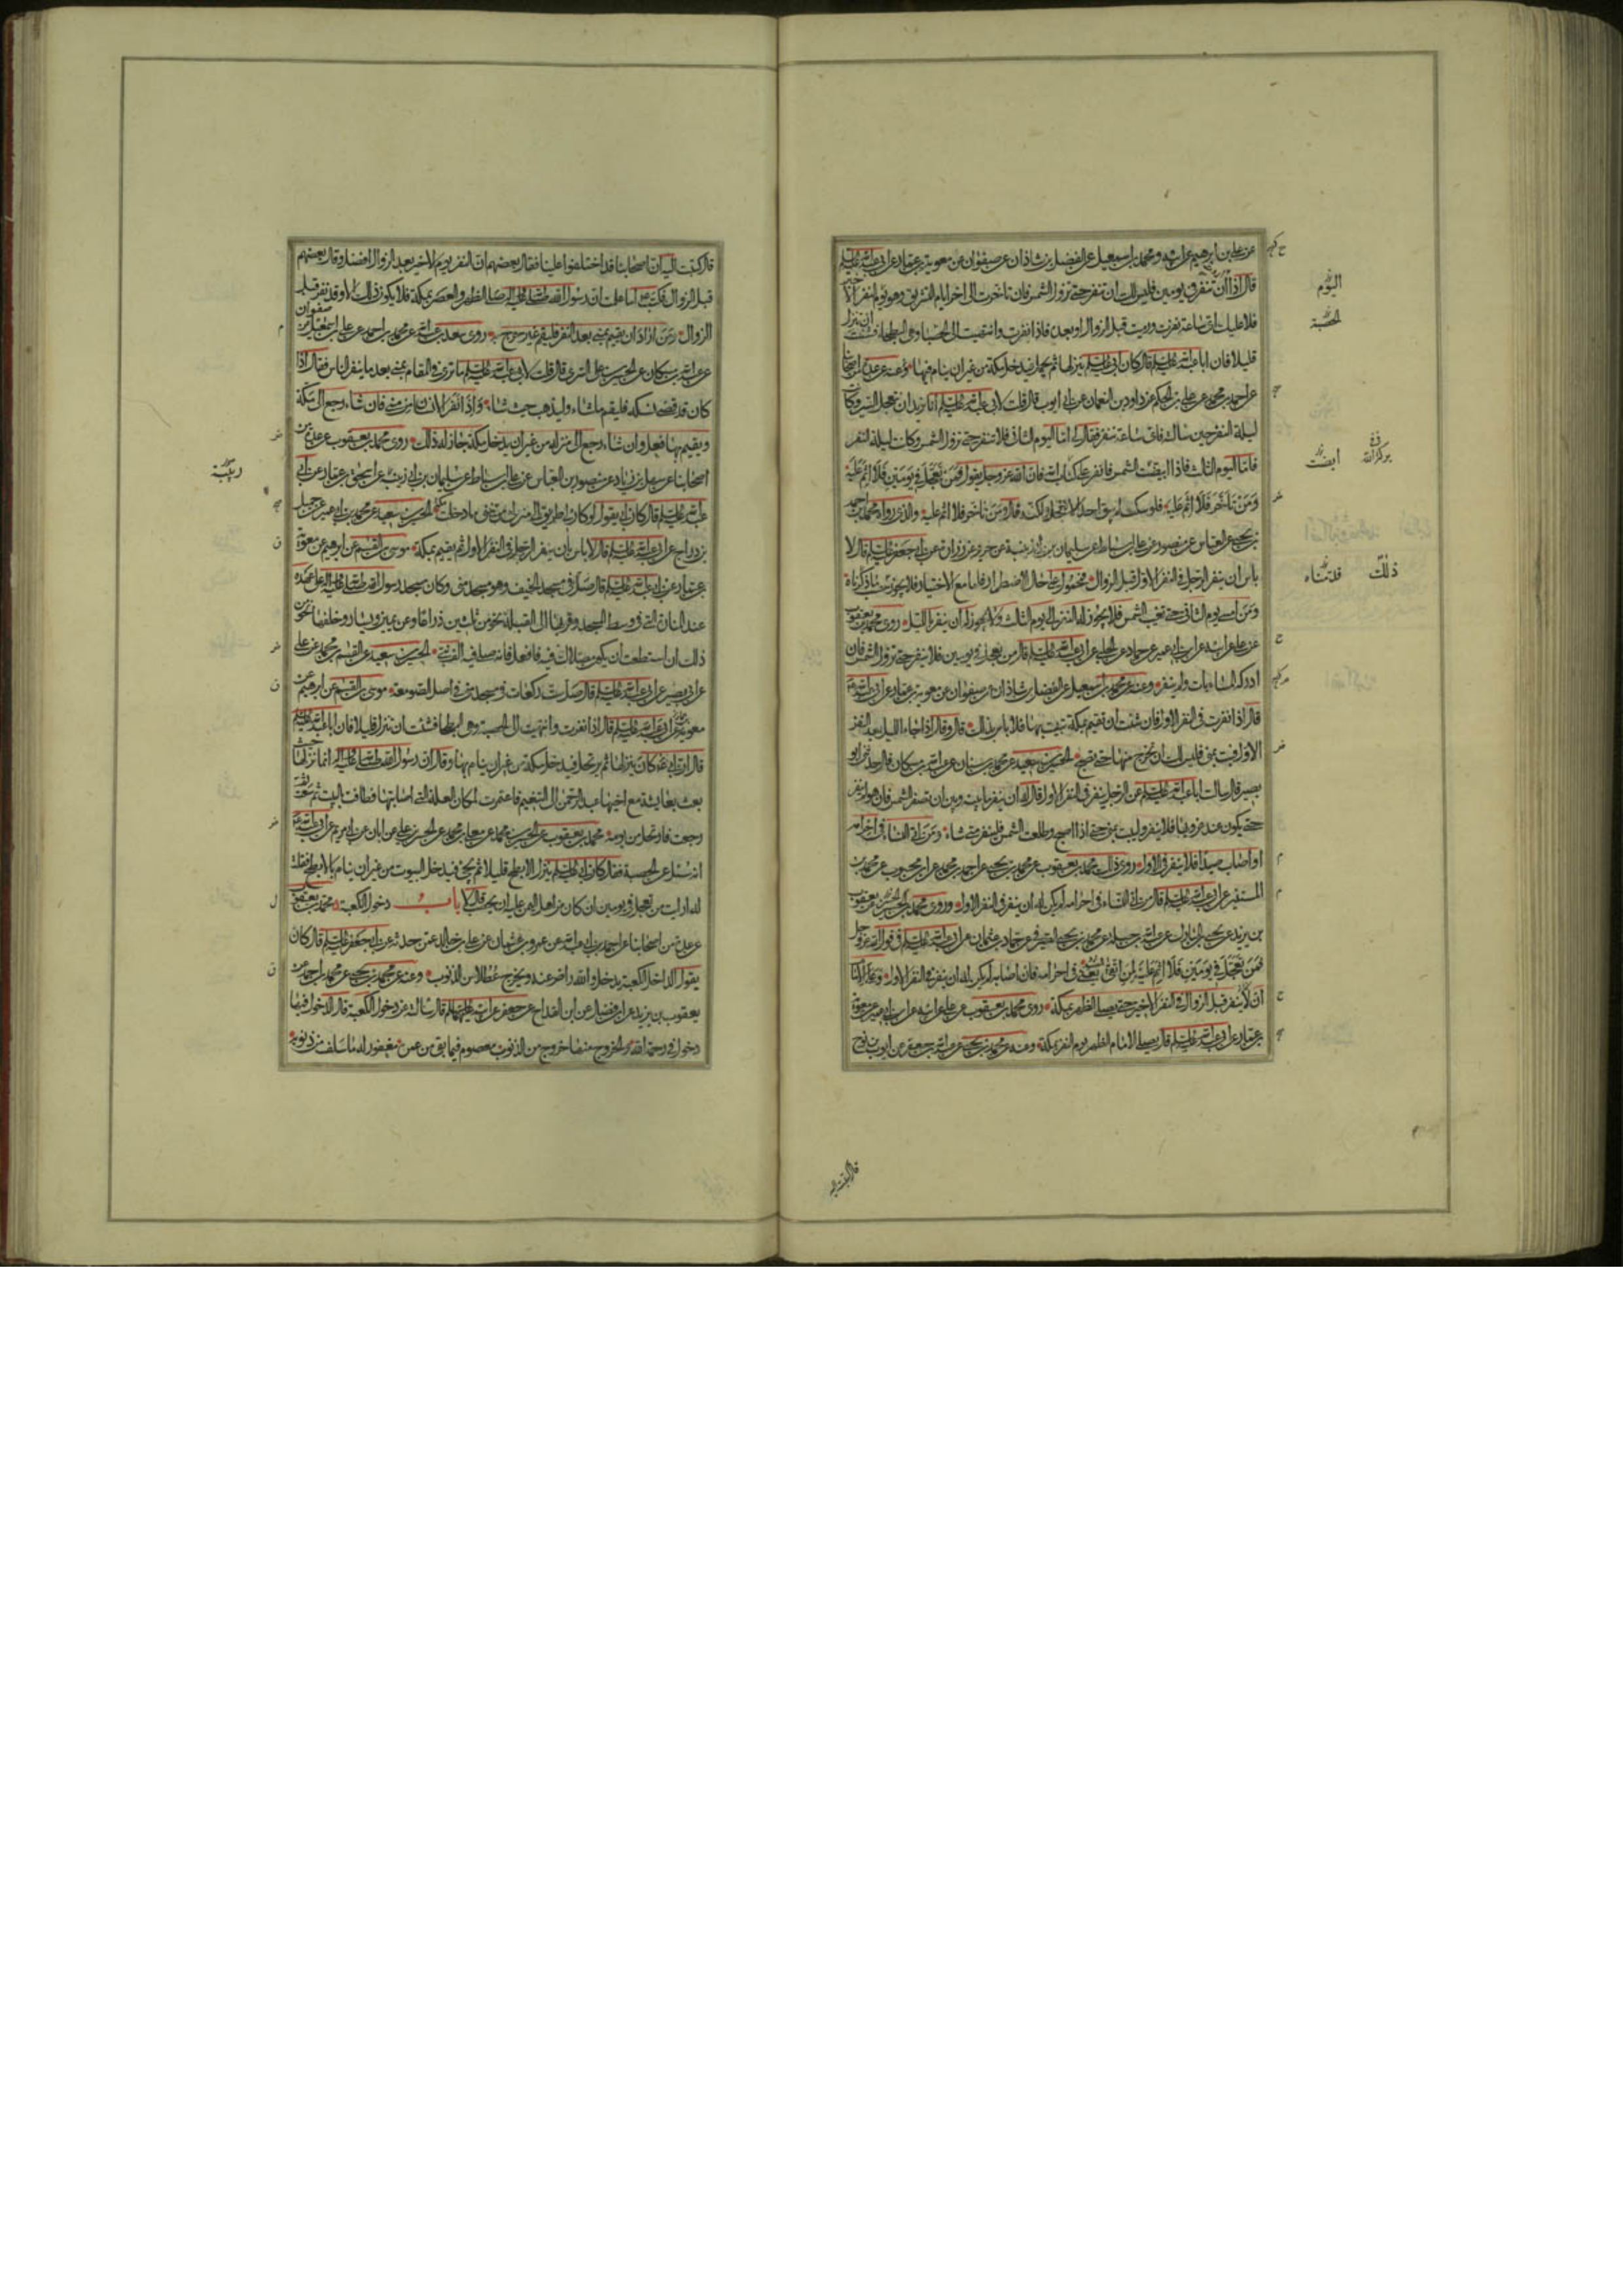 عن علي بن ابرهيم عن ابيه ومحمد بن اسمعيل عن الفضل بن شاذان عن صفوان عن معوية بن عمار عن ابي عبد الله عليه السلم
قال اذا اردت ان تنفر في يومين فليس لك ان تنفر حتى تزول الشمس فان تاخرت الى اخر ايام التشريق وهو يوم النفر الاخير
فلا عليك اي ساعة نفرت ورميت قبل الزوال او بعده فاذا نفرت وانتهيت الى الحصبا وهي البطحا فشئت ان تنزل
قليلا فان ابا عبد الله عليه السلم قال كان ابي عليه السلم ينزلها ثم يحمل فيدخل مكة من غير ان ينام فيها وعنه عن عدة من اصحابنا
عن احمد بن محمد عن علي بن الحكم عن داود بن النعمان عن ابي ايوب قال قلت لابي عبد الله عليه السلم انا نريد ان نتعجل السير وكانت
ليلة النفر حين سالته فاي ساعة ننفر فقال لي اما اليوم الثاني فلا تنفر حتى تزول الشمس وكانت ليلة النفر
فاما اليوم الثالث فاذا ابيضت الشمس فانفر على كتاب الله فان الله عز وجل يقول فمن تعجل في يومين فلا اثم عليه
ومن تاخر فلا اثم عليه فلو سكت لم يبق احد الا تعجل ولكنه قال ومن تاخر فلا اثم عليه والذي رواه محمد بن احمد
بن يحيى عن العباس عن منصور عن علي بن اسباط عن سليمان بن ابي زينبة عن حريز عن زرارة عن ابي جعفر عليه السلم قال لا
باس ان ينفر الرجل في النفر الاول قبل الزوال فمحمول على حال الاضطرار فاما مع الاختيار فلا يجوز حسب ما ذكرناه
ومن امسى يوم الثاني حتى تغيب الشمس فلا يجوز له النفر الى يوم الثالث ولا يجوز له ان ينفر بالليل روى محمد بن يعقوب
عن علي عن ابيه عن ابن ابي عمير عن حماد عن الحلبي عن ابي عبد الله عليه السلم قال من تعجل في يومين فلا ينفر حتى تزول الشمس فان
ادركه المساء بات ولم ينفر وعنه عن محمد بن اسمعيل عن الفضل بن شاذان عن صفوان عن معوية بن عمار عن ابي عبد الله
قال اذا نفرت في النفر الاول فان شئت ان تقيم بمكة تبيت بها فلا باس بذلك قال وقال اذا جاء الليل بعد النفر
الاول فبت بمنى فليس لك ان تخرج منها حتى تصبح الحسين بن سعيد عن محمد بن سنان عن عبد الله بن مسكان قال حدثني ابو
بصير قال سالت ابا عبد الله عليه السلم عن الرجل ينفر في النفر الاول قال له ان ينفر ما بينه وبين ان تصفر الشمس فان هو لم ينفر
حتى يكون عند غروبها فلا ينفر وليبت بمنى حتى اذا اصبح وطلعت الشمس فلينفر متى شاء ومن اتى النساء في احرامه
او اصاب صيدا فلا ينفر في الاول روى ذلك محمد بن يعقوب عن محمد بن يحيى عن احمد بن محمد عن ابن محبوب عن محمد بن
المستنير عن ابي عبد الله عليه السلم قال من اتى النساء في احرامه لم يكن له ان ينفر في النفر الاول وروى محمد بن الحسين عن يعقوب
بن يزيد عن يحيى بن المبارك عن عبد الله بن جبلة عن محمد بن يحيى الصيرفي عن حماد بن عثمان عن ابي عبد الله عليه السلم في قول الله عز وجل
فمن تعجل في يومين فلا اثم عليه لمن اتقى الصيد يعني في احرامه فان اصابه لم يكن له ان ينفر في النفر الاول وعلى الامام
ان لا ينفر قبل الزوال في النفر الاخير حتى يصلي الظهر بمكة روى محمد بن يعقوب عن علي عن ابيه عن ابن ابي عمير عن معوية
بن عمار عن ابي عبد الله عليه السلم قال يصلي الامام الظهر يوم النفر بمكة وعنه عن محمد بن يحيى عن عبد الله بن جعفر عن ايوب بن نوح
اليوم
الحصبة
ابيضت
ذلك
قال كتبت
قال كتبت اليه ان اصحابنا قد اختلفوا علينا فقال بعضهم ان النفر يوم الاخير بعد الزوال افضل وقال بعضهم
قبل الزوال فكتب اما علمت ان رسول الله صلى الله عليه واله صلى الظهر والعصر بمكة فلا يكون ذلك الا وقد نفر قبل
الزوال ومن اراد ان يقيم بمنى بعد النفر فليقم غير حرج روى سعد بن عبد الله عن محمد بن احمد عن علي بن اسمعيل عن صفوان
عن عبد الله بن مسكان عن الحسن بن علي السري قال قلت لابي عبد الله عليه السلم ما ترى في المقام بمنى بعد ما ينفر الناس فقال اذا
كان قد قضى نسكه فليقم ما شاء وليذهب حيث شاء واذا نفر الانسان من منى فان شاء رجع الى مكة
ويقيم بها فعل وان شاء رجع الى منزله من غير ان يدخل مكة جاز له ذلك روى محمد بن يعقوب عن عدة من
اصحابنا عن سهل بن زياد عن منصور بن العباس عن علي بن اسباط عن سليمان بن ابي زينبة عن اسحق بن عمار عن ابي
عبد الله عليه السلم قال كان ابي يقول لو كان لي طريق الى منزلي من منى ما دخلت مكة الحسين بن سعيد عن محمد بن ابي عمير عن جميل
بن دراج عن ابي عبد الله عليه السلم قال لا باس ان ينفر الرجل في النفر الاول ثم يقيم بمكة موسى بن القسم عن ابرهيم عن معوية
بن عمار عن ابي عبد الله عليه السلم قال صل في مسجد الخيف وهو مسجد منى وكان مسجد رسول الله صلى الله عليه واله على عهده
عند المنارة التي في وسط المسجد وفوقها الى القبلة نحو من ثلثين ذراعا وعن يمينها ويسارها وخلفها نحو من
ذلك ان استطعت ان يكون مصلاك فيه فافعل فانه صلى فيه الف نبي الحسين بن سعيد عن القسم بن محمد عن علي
عن ابي بصير عن ابي عبد الله عليه السلم قال صل ست ركعات في مسجد منى في اصل الصومعة موسى بن القسم عن ابرهيم عن
معوية بن عمار عن ابي عبد الله عليه السلم قال اذا نفرت وانتهيت الى الحصبة وهي البطحا فشئت ان تنزل قليلا فان ابا عبد الله عليه السلم
قال ان ابي كان ينزلها ثم يرتحل فيدخل مكة من غير ان ينام بها وقال ان رسول الله صلى الله عليه واله انما نزلها حيث
بعث بعايشة مع اخيها عبد الرحمن الى التنعيم فاعتمرت لمكان العلة التي اصابتها فطافت بالبيت ثم سعت ثم
رجعت فارتحل من يومه محمد بن يعقوب عن الحسين بن محمد عن معلى بن محمد عن الحسن بن علي عن ابان عن ابي مريم عن ابي عبد الله
انه سئل عن الحصبة فقال كان ابي عليه السلم ينزل الابطح قليلا ثم يجيء فيدخل البيوت من غير ان ينام بالابطح فقلت
له ارايت من تعجل في يومين ان كان من اهل اليمن عليه ان يحصب قال لا باب دخول الكعبة محمد بن يعقوب
عن عدة من اصحابنا عن احمد بن ابي عبد الله عن عمرو بن عثمان عن علي بن خالد عمن حدثه عن ابي جعفر عليه السلم قال كان
يقول الداخل الكعبة يدخل والله راض عنه ويخرج عطلا من الذنوب وعنه عن محمد بن يحيى عن محمد بن احمد عن
يعقوب بن يزيد عن ابن فضال عن ابن القداح عن جعفر عن ابيه عليهما السلم قال سالته عن دخول الكعبة قال الدخول فيها
دخول في رحمة الله والخروج منها خروج من الذنوب معصوم فيما بقي من عمره مغفور له ما سلف من ذنوبه